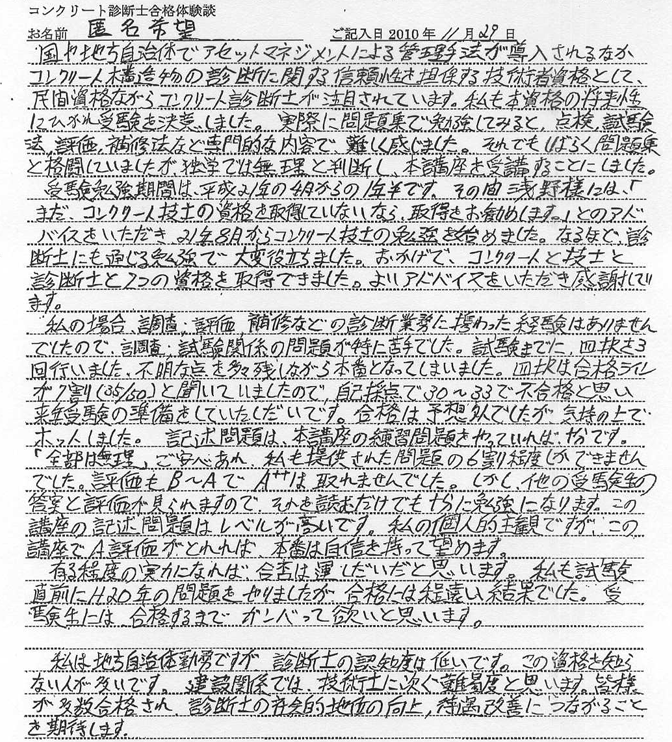 コンクリート診断士合格体験談
お名前 匿名希望 ご記入日 2010年 11月 29日
国や地方自治体でアセットマネジメントによる管理手法が導入されるなか
コンクリート構造物の診断に関する信頼性を担保する技術者資格として、
民間資格ながらコンクリート診断士が注目されています。私も本資格の将来性
にひかれ受験を決意しました。実際に問題集で勉強してみると、点検、試験方
法、評価、補修法など専門的な内容で難しく感じました。それでもしばらく問題集
と格闘していましたが独学では無理と判断し、本講座を受講することにしました。
受験勉強期間は、平成21年の4月からの1年半です。その内浅野様には、「
まだ、コンクリート技士の資格を取得していないなら、取得をお勧めします。」とのアド
バイスをいただき、21年8月からコンクリート技士の勉強を始めました。なるほど、診
断士にも通じる勉強で大変役立ちました。おかげで、コンクリート技士と
診断士と2つの資格を取得できました。よいアドバイスをいただき感謝してい
ます。
私の場合、調査、評価、補修などの診断業務に携わった経験はありません
でしたので、調査、試験関係の問題が特に苦手でした。試験までに、四択は3
回行いました、不明な点を多々残しながら本番となってしまいました。四択は合格ライン
が7割(35/50)と聞いていましたので、自己採点で30～33で不合格と思い
来年受験の準備をしていたしだいです。合格は予想外でしたが気持の上で
ホッとしました。 記述問題は、本講座の練習問題をやっていれば十分です。
「全部は無理」ご安心あれ、私も提供された問題の6割程度しかできません
でした。評価もB～AでA++は取れませんでした。しかし、他の受験生の
答案と評価が見られますので、それを読むだけでも十分に勉強になります。この
講座の記述問題はレベルが高いです。私の個人的主観ですが、この
講座でA評価がとれれば、本番は自信を持って望めます。
有る程度の実力になれば、合否は運しだいだと思います。私も試験
直前にH20年の問題をやりましたが、合格には程遠い結果でした。受
験生には、合格するまでガンバって欲いと思います。
私は地方自治体勤務ですが、診断士の認知度は低いです。この資格を知ら
ない人が多いです。建設関係では、技術士に次ぐ難易度と思います。皆様
が多数合格され、診断士の社会的地位の向上、待遇改善につながること
を期待します。